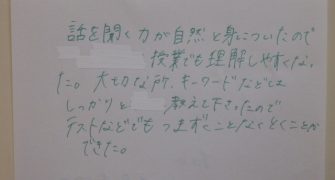 話を聞く力が自然と身についたので
授業でも理解しやすくな,
た。大切な所、キーワードなどは
しっかりと 教えて下さったので
テストなどでもつまずくことなくとくことが
できた。